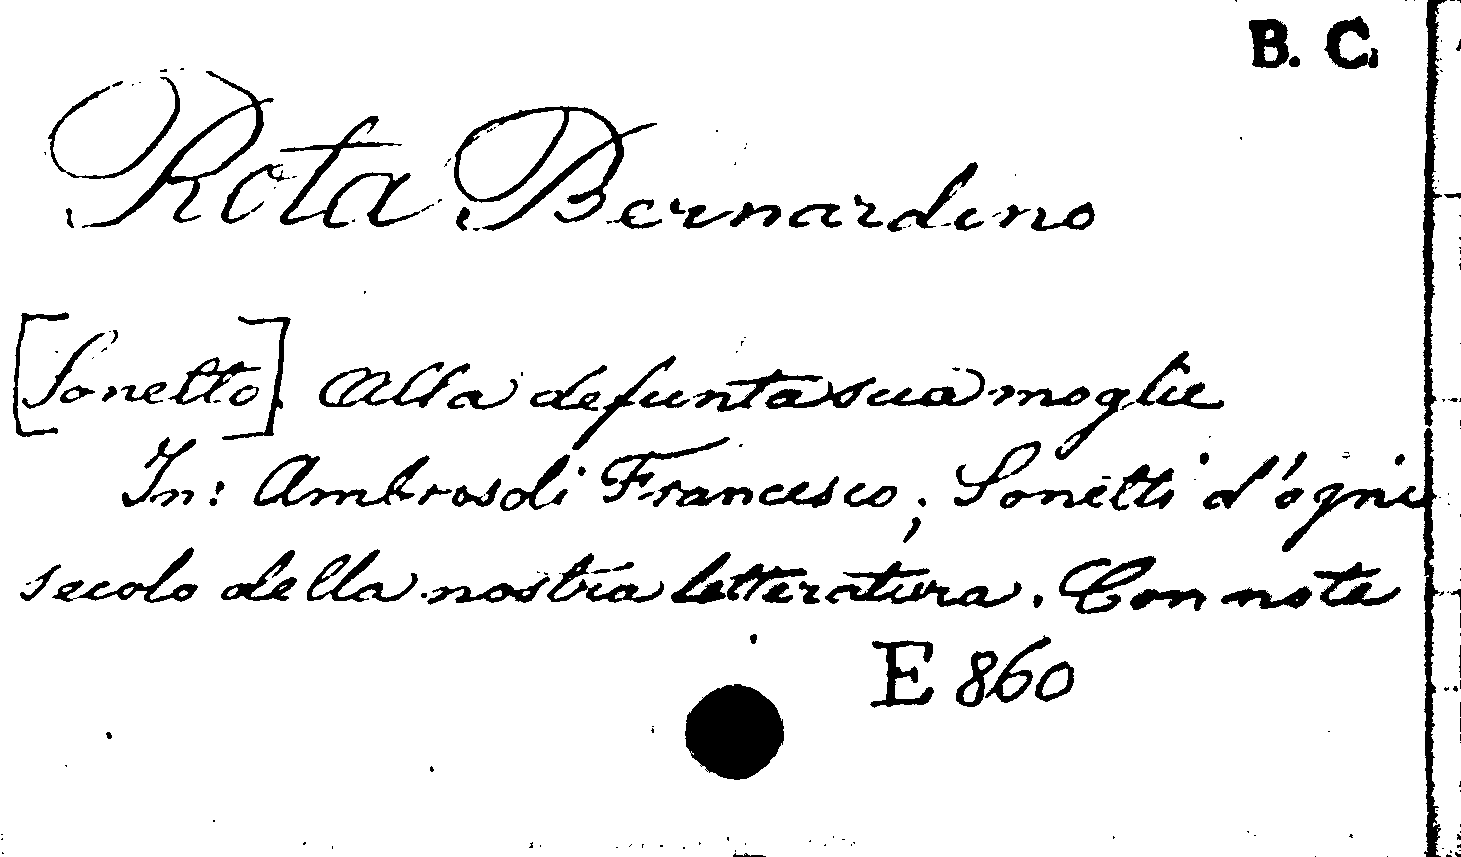 B. C.
Rota Bernardino
[Sonetto]. Alla defunta sua moglie
In: Ambrosoli Francesco; Sonetti d'ogni
secolo della nostra letteratura. Con note
E 860